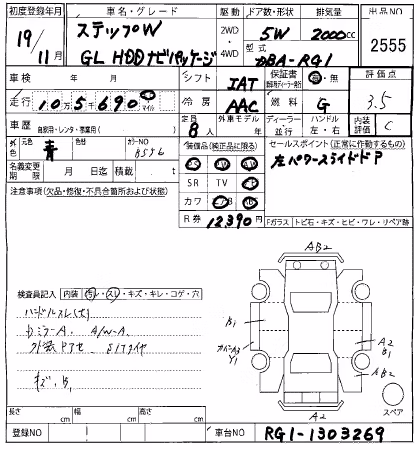 初度登録年月 車名・グレード 駆動 ドア数・形状 排気量 出品NO
19/11月 ステップW 2WD・4WD 5W 2000cc 2555
GL HDDナビパッケージ 型式 DBA-RG1
車検 年 月 シフト IAT 保証書 有・無 評価点
走行 10万5千690 マイル 冷房 AAC 燃料 G 3.5
車歴 自家用・レンタ・事業用( ) 定員 8人 外車モデル 年 ディーラー 並行 ハンドル 左・右 内装評価 C
外色 元色 青 カラーNO B536 装備品(純正品に限る) セールスポイント(正常に作動するもの)
PS SW AW 左パワースライドドア
名義変更期限 月 日迄 積載 t SR TV
注意事項(欠品・修復・不具合箇所および状態) カワ AB
R券 12390円 Fガラス トビ石・キズ・ヒビ・ワレ・リペア跡
AB2
検査員記入 内装 汚レ・スレ・キズ・キレ・コゲ・穴
ハンドルスレ(大)
B1
DミラーA A/W-A
A2
B1
Y1
AB2
キズ、B1
スペア
長さ cm 幅 cm 高さ cm A2
登録NO 車台NO RG1-1303269